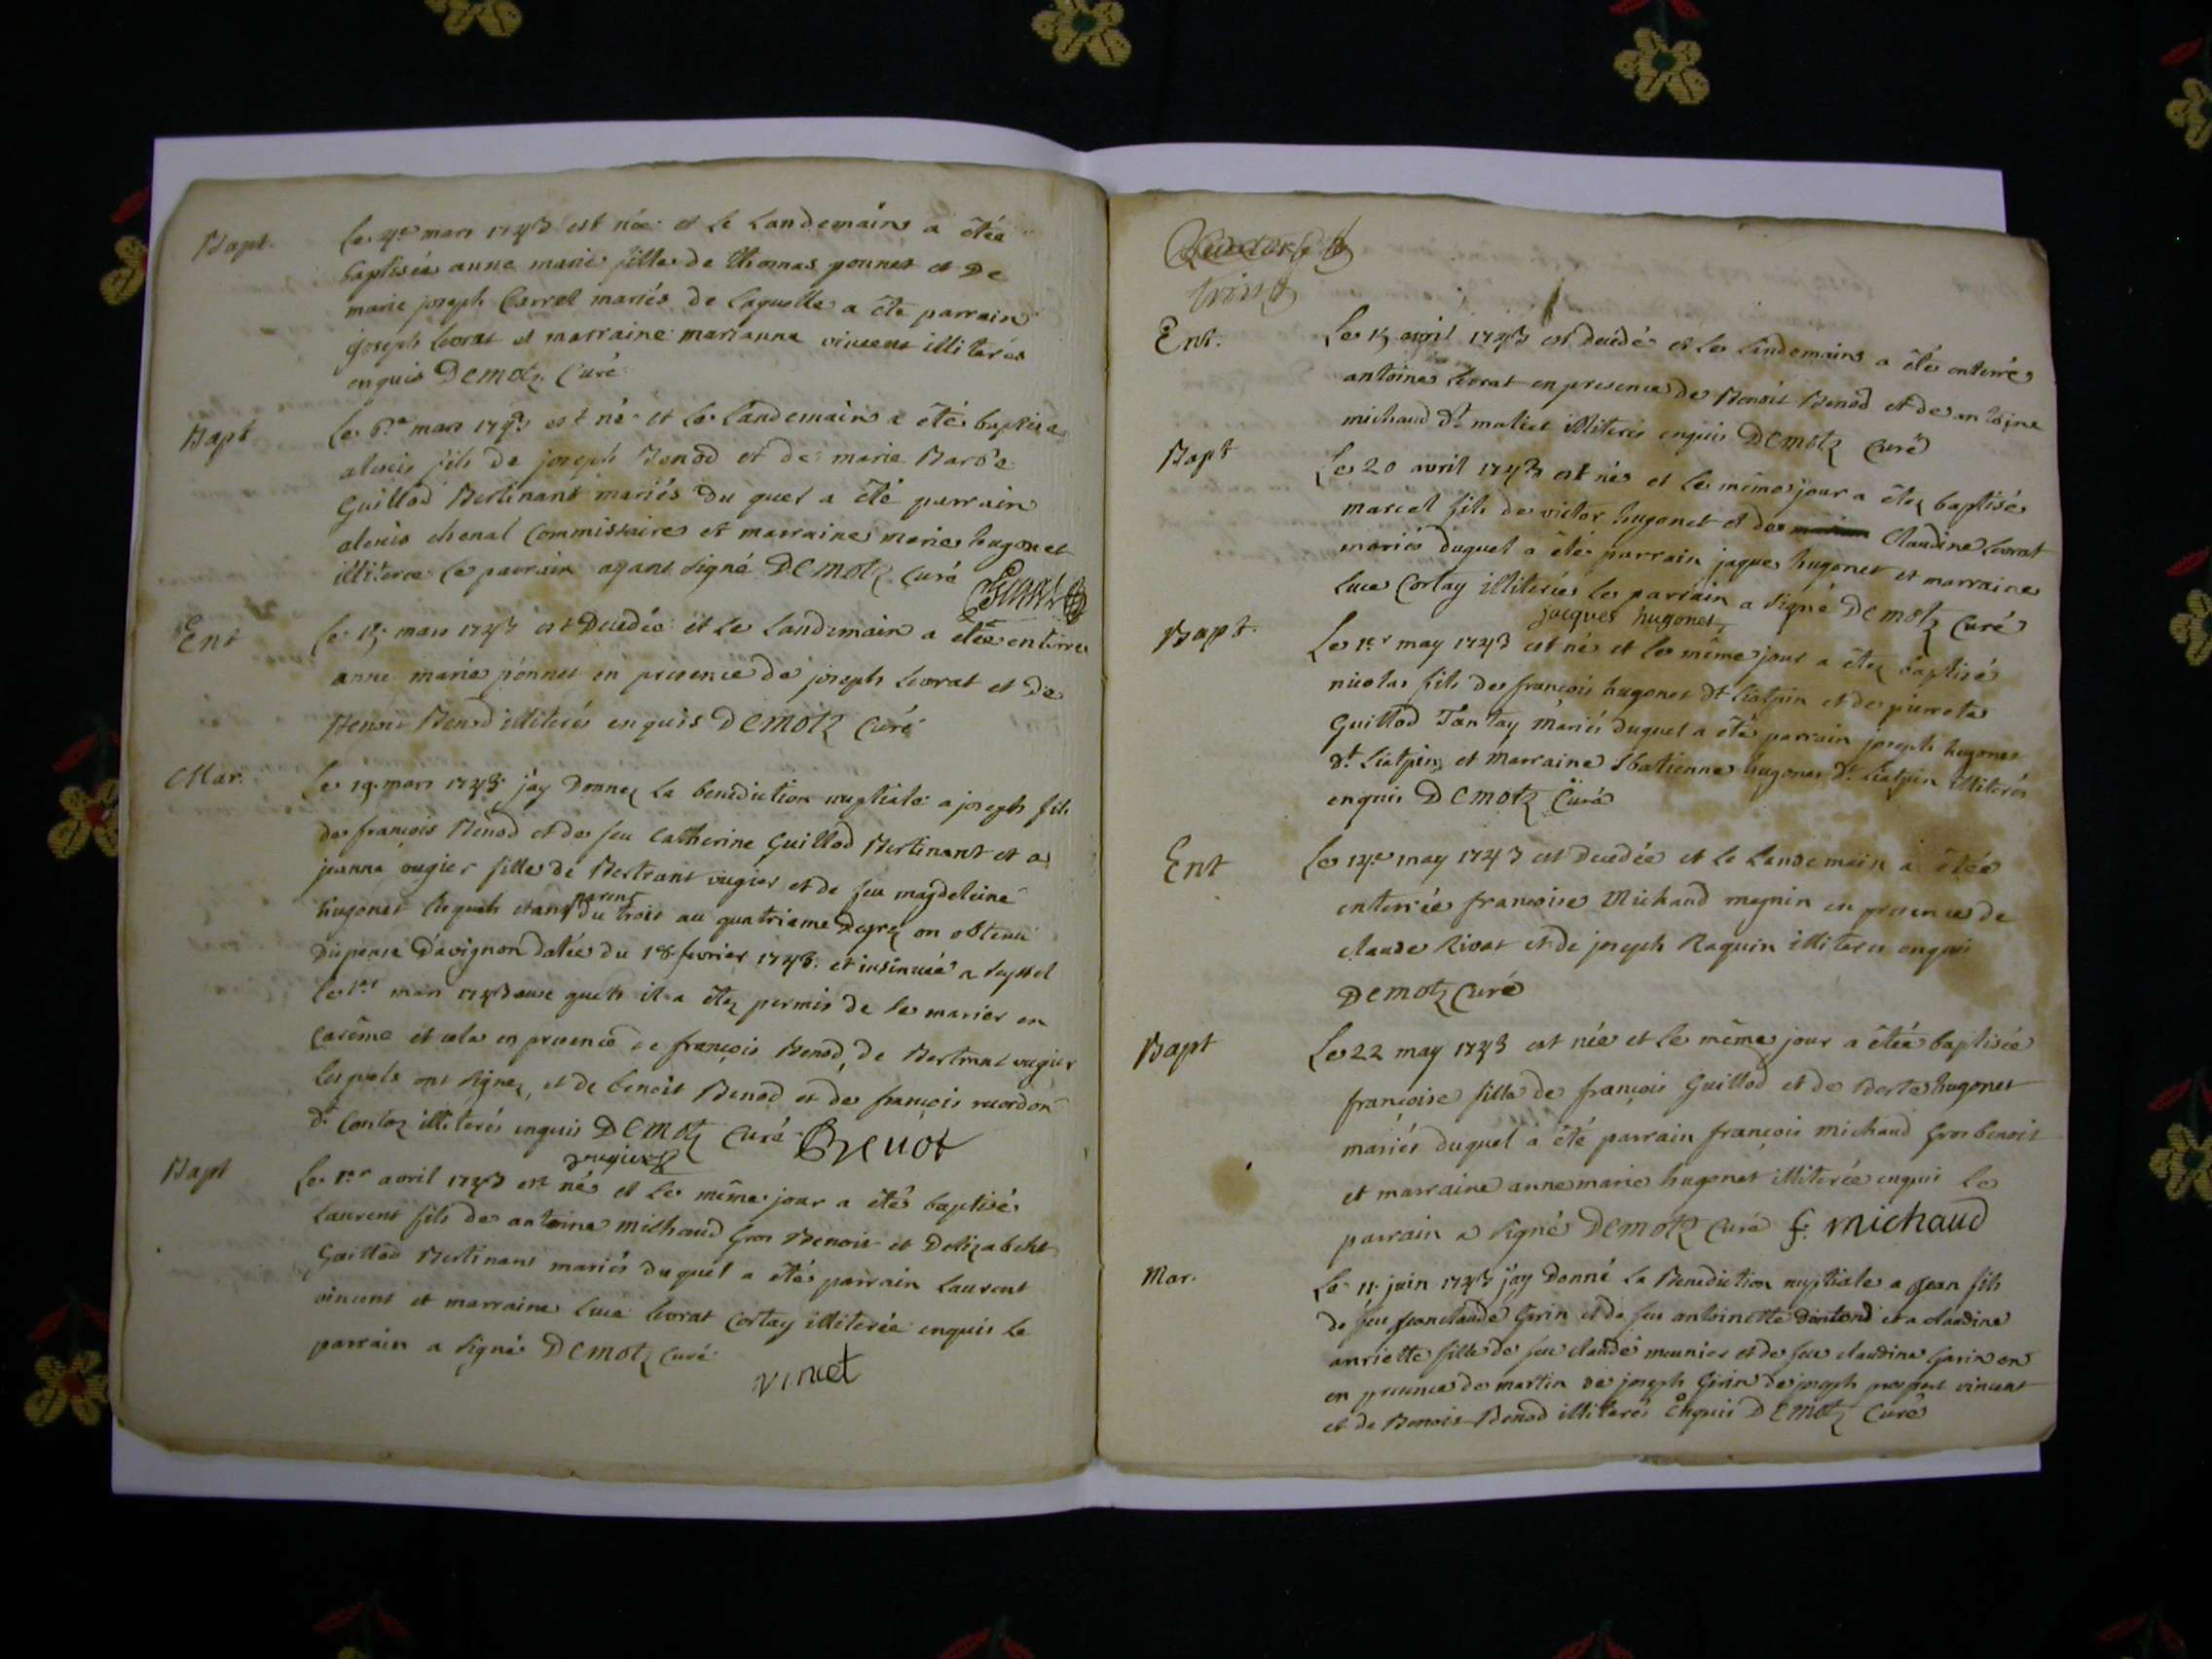 Bapt. Le 4e mars 1743 est née et le Landemains a étée
baptisée anne marie fille de Thomas ponnet et De
marie joseph Carrel mariés de Laquelle a éte parrain
joseph Levrat et marraine marianne vincent illiterés
enquis Demotz Curé
Bapt Le 6.e mars 1743 est né et Le Landemain a été baptisé
alexis fils de joseph Benod et de marie Barbe
Guillod Bertinand mariés du quel a été parrain
alexis chenal Commissaire et marraine marie hugonet
illiterée Le parrain ayant signé Demotz Curé
Ent Le mars 1743 est Decedée et Le Landemain a étée enterrée
anne marie ponnet en presence de joseph Levrat et de
Benoit Benod illiterés enquis Demotz Curé
Mar. Le 19 mars 1743 j'ay Donnez La benediction nuptiale a joseph fils
de françois Benod et de feu Catherine Guillod Bertinand et a
jeanne vugier fille de Bertrant vugier et de feu magdeleine
hugonet lesquels etans parens du trois au quatrieme Degrez on obtenu
dispense D'avignon datée du 18 fevrier 1743 et insinuée a seyssel
Le 1er mars 1743 auxquels il a étez permis de se marier en
Carême et cela en presence de françois Benod, de Bertrant vugier
Lesquels ont signez, et de benoit Benod et de françois
dt illiterés enquis Demotz Curé Benot
vugier
Bapt Le 1er avril 1743 est né et Le même jour a été baptisé
Laurent fils de antoine Michaud Gros Benoit et Delizabeht
Guillod Bertinand mariés duquel a étés parrain Laurent
vincent et marraine Luce Levrat Cortay illiterée enquis Le
parrain a signé Demotz curé
vincet
Ent. Le avril 1743 est decedé et Le Landemains a étés enterré
antoine Levrat en presence de Benoit Benod et de antoine
michaud dt illiterés enquis Demotz Curé
Bapt Le 20 avril 1743 est né et Le même jour a étez baptisé
marcel fils de victor hugonet et de Claudine Levrat
mariés duquel a été parrain jaques hugonet et marraine
Luce Cortay illiterée Le parrain a signé Demotz Curé
jacques hugonet
Bapt. Le 1er may 1743 est né et Le même jour a étez baptisé
nicolas fils de françois hugonet dt Liatpin et de pierrete
Guillod Tantay mariés duquel a été parrain joseph hugonet
dt Liatpin et marraine hugonet dt Liatpin illiterés
enquis Demotz Curé
Ent Le 14e may 1743 est decedée et Le Landemain a étée
enterrée françoise Michaud megnin en presence de
claude Rivat et de joseph Raquin illiterés enquis
Demotz Curé
Bapt Le 22 may 1743 est née et Le même jour a étée baptisée
françoise fille de françois Guillod et de Berte hugonet
mariés duquel a été parrain françois Michaud Gros benoit
et marraine anne marie hugonet illiterée enquis Le
parrain a signé Demotz curé f. michaud
Mar. Le 11 juin 1743 j'ay Donné La Benediction nuptiale a jean fils
de feu jeanclaude Garin et de feu antoinette et a claudine
anriette fille de feu claude meunier et de feu claudine Garin en
en presence de martin de joseph Girin de joseph prospert vincent
et de Benoit Benod illiterés enquis Demotz Curé